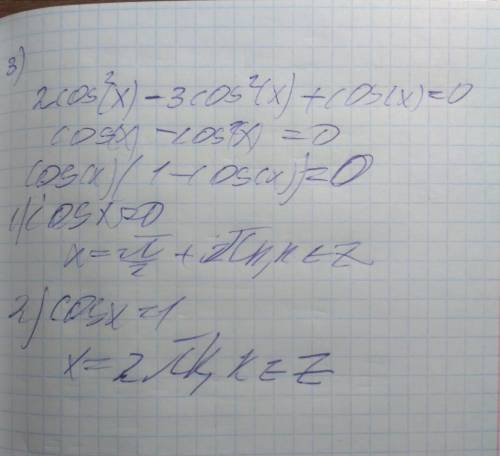 3)
2cos²(x) - 3cos²(x) + cos(x) = 0
cos(x) - cos²(x) = 0
cos(x)(1 - cos(x)) = 0
1) cosx = 0
x = π/2 + πk, k ∈ Z
2) cosx = 1
x = 2πk, k ∈ Z